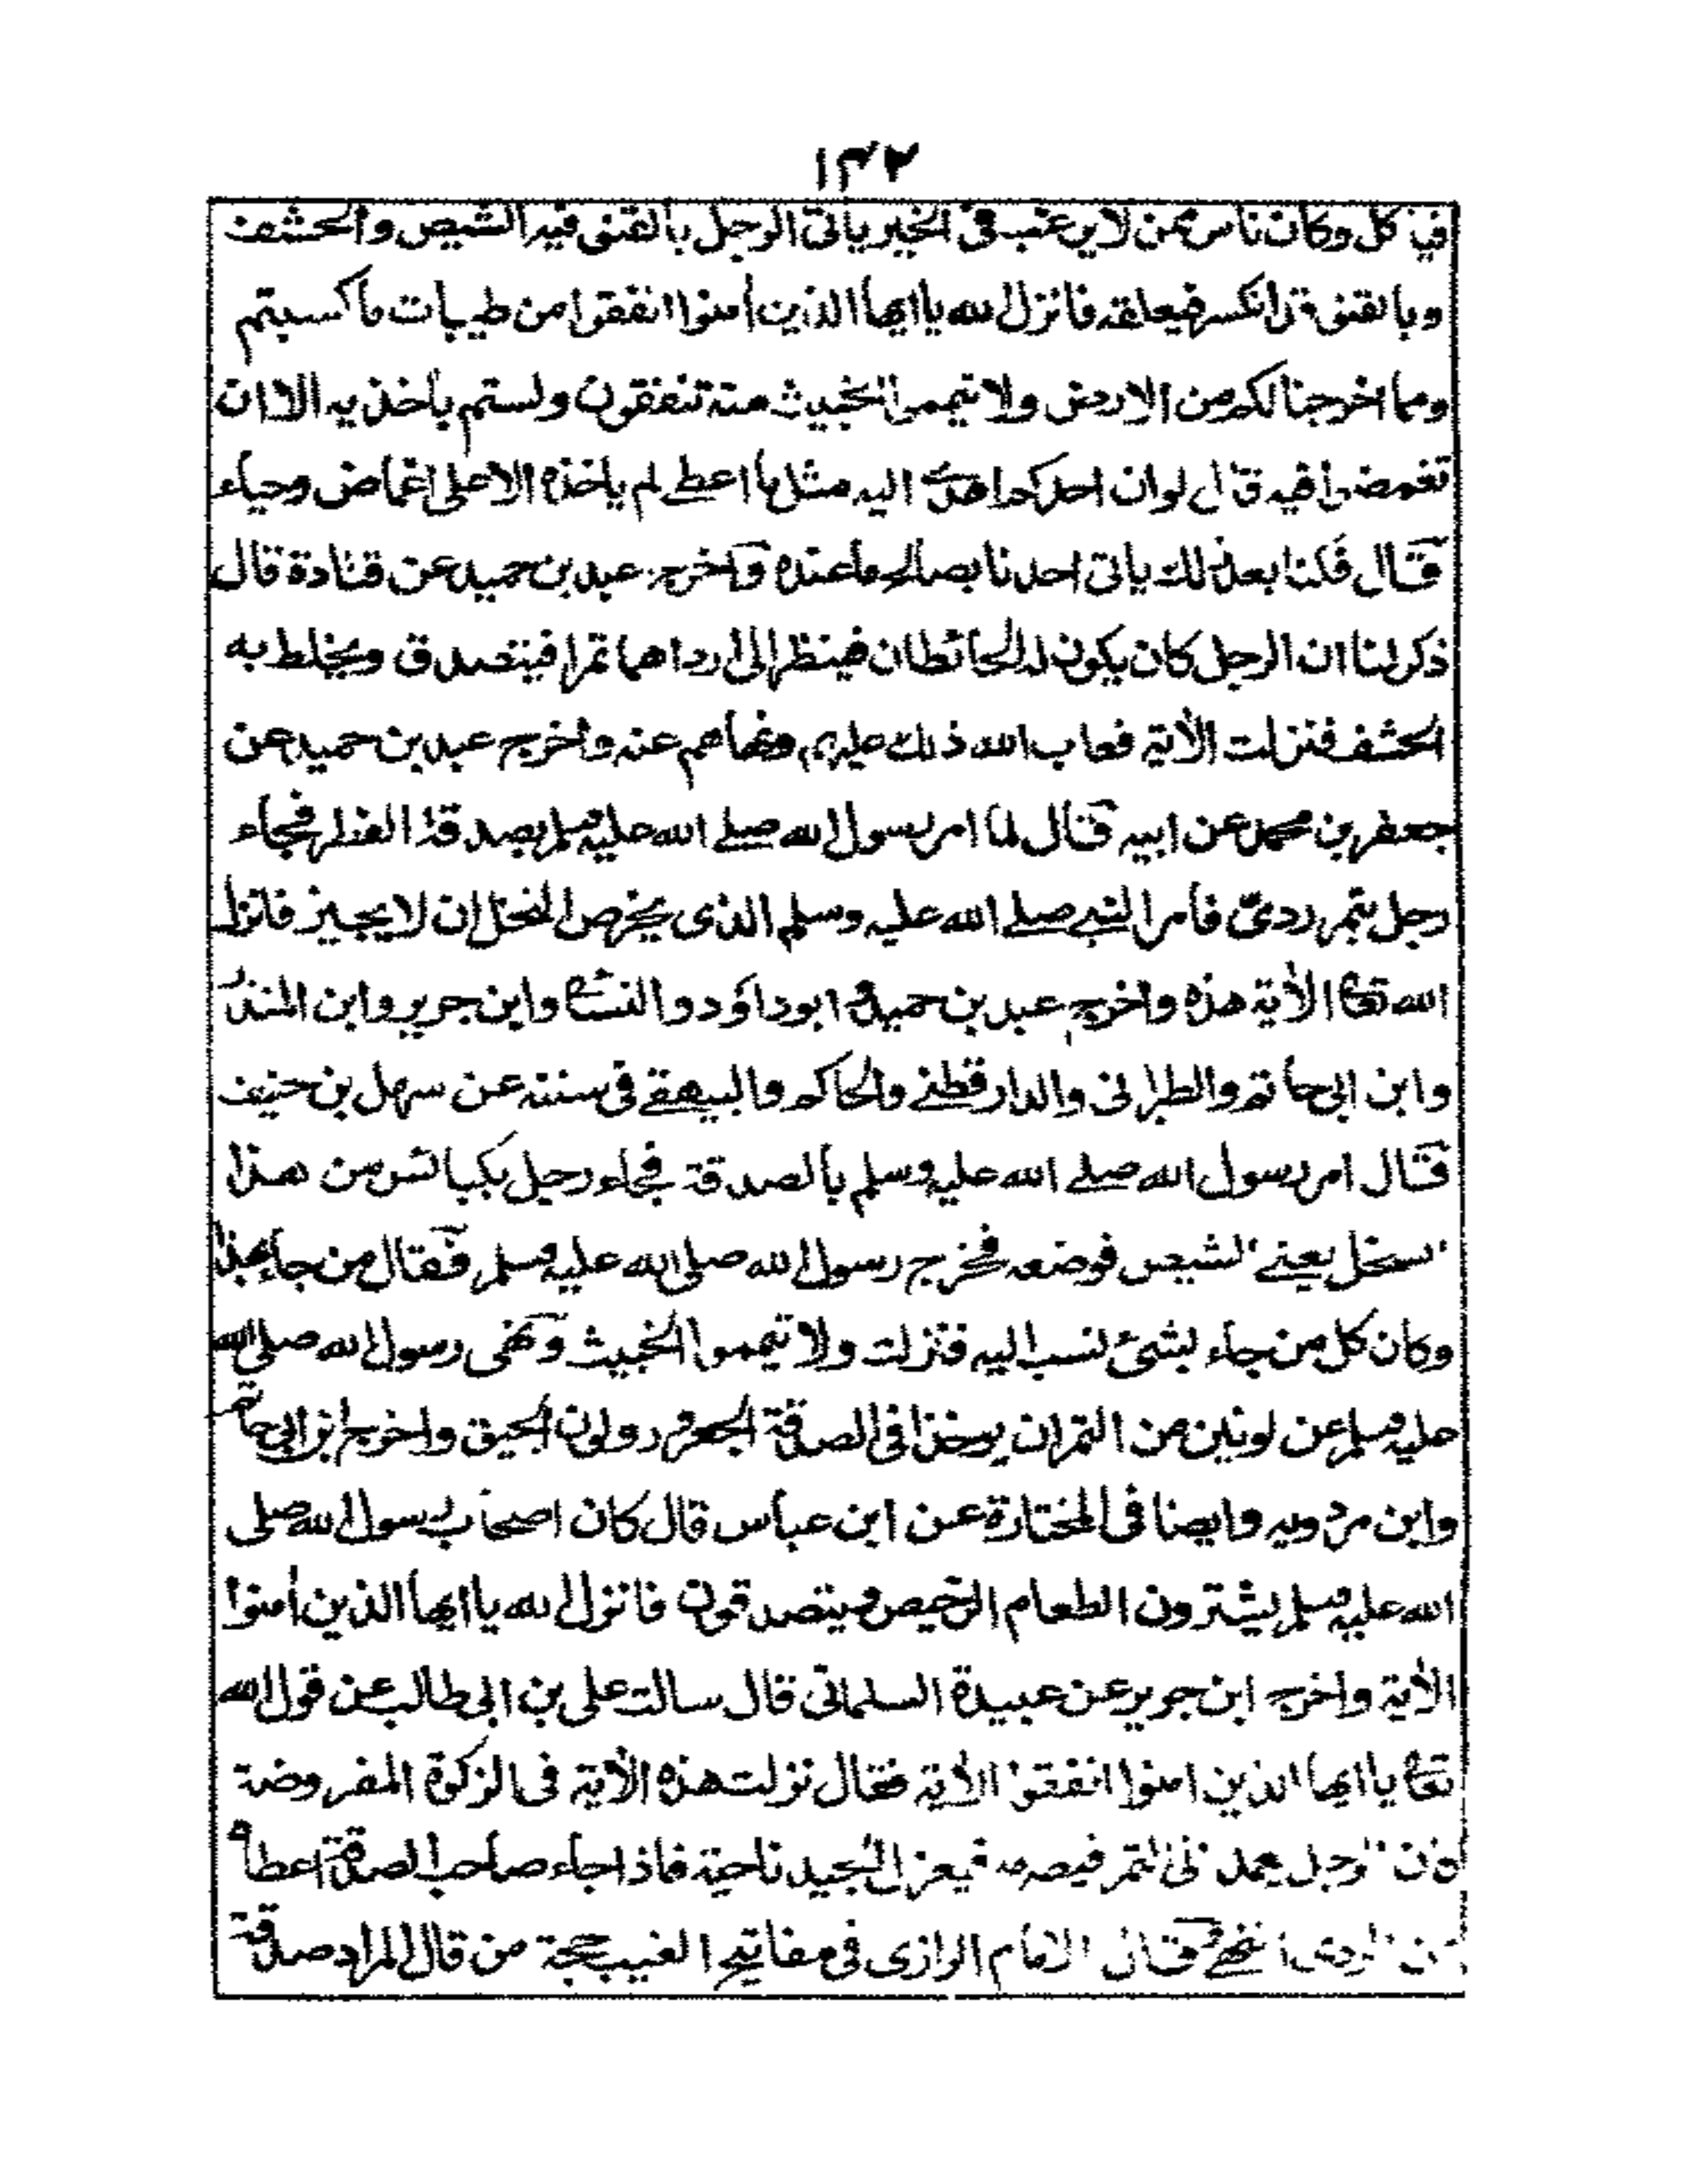 ١٣٢
فيأكل وكان ناس ممن لا يرغب فى الخير ياتى الرجل بالقنى فيه الشيص والحشف
وبالقنى قد انكسر فيعلقه فانزل الله يا ايها الذين أمنوا انفقوا من طيبات ما كسبتم
ومما اخرجنا لكم من الارض ولا تيمموا الخبيث منه تنفقون ولستم باخذيه الا ان
تغمضوا فيه قال لو ان احدكم اهدى اليه مثل ما اعطى لم ياخذه الا على اغماض وحياء
قال فكنا بعد ذلك ياتى احدنا بصالح ما عنده واخرج عبد بن حميد عن قتادة قال
ذكر لنا ان الرجل كان يكون له الحائطان فينظر الى ارداهما تمرا فيتصدق ويخلط به
الحشف فنزلت الأية فعاب الله ذلك عليهم ونهاهم عنه واخرج عبد بن حميد عن
جعفر بن محمد عن ابيه قال لما امر رسول الله صلى الله عليه وسلم بصدقة الفطر فجاء
رجل بتمر ردئ فامر النبى صلى الله عليه وسلم الذى يخرص النخل ان لا يجيز فانزل
الله تعالى الأية هذه واخرج عبد بن حميد و ابو داؤد والنسائى وابن جرير وابن المنذر
وابن ابى حاتم والطبرانى والدارقطنى والحاكم والبيهقى فى سننه عن سهل بن حنيف
قال امر رسول الله صلى الله عليه وسلم بالصدقة فجاء رجل بكبائس من هذا
السخل يعنى الشيص فوضعه فخرج رسول الله صلى الله عليه وسلم فقال من جاء بهذا
وكان كل من جاء بشئ نسب اليه فنزلت ولا تيمموا الخبيث ونهى رسول الله صلى الله
عليه وسلم عن لونين من التمر ان يوخذا فى الصدقة الجعرور ولون الحبيق واخرج ابن ابى حاتم
وابن مردويه وايضا فى المختارة عن ابن عباس قال كان اصحاب رسول الله صلى
الله عليه وسلم يشترون الطعام الرخيص ويتصدقون فانزل الله يا ايها الذين أمنوا
الأية واخرج ابن جرير عن عبيدة السلمانى قال سالت على بن ابى طالب عن قول الله
تعالى يا ايها الذين امنوا انفقوا الأية فقال نزلت هذه الأية فى الزكوة المفروضة
كان الرجل يعمد الى التمر فيصرمه فيعزل الجيد ناحية فاذا جاء صاحب الصدقة اعطاه
من الردى انتهى قال الامام الرازى فى مفاتيح الغيب حجة من قال المراد صدقة